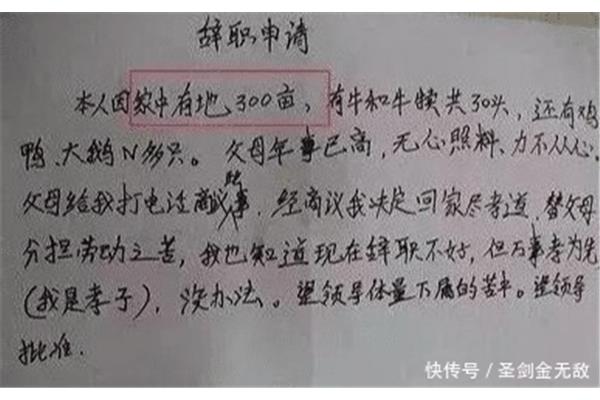 辞职申请
本人因家中有地300亩,有牛和牛犊共30头,还有鸡
鸭、大鹅N多只。父母年事已高,无心照料、力不从心。
父母给我打电话商议事,经商议我决定回家尽孝道,替父母
分担劳动之苦,我也知道现在辞职不好,但万事孝为先
(我是孝子),没办法。望领导体量下属的苦中。望领导
批准.
快传号/圣剑金无敌